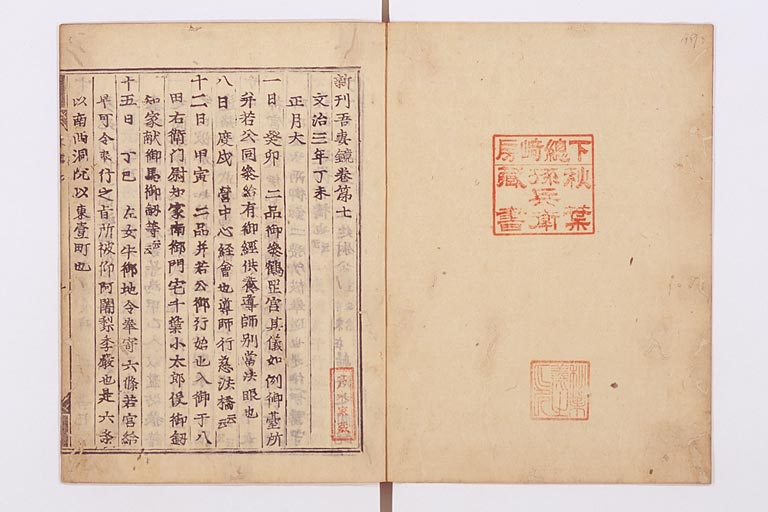 下總崎房
秋葉孫兵衛
藏書
新刊吾妻鏡卷第七
文治三年丁未
正月大
一日 癸卯 二品御參鶴罡宮其儀如例御臺所
并若公同參給有御經供養導師別當法眼也
八日 庚戌 營中心經會也導師行慈法橋云云
十二日 甲寅 二品并若公御行始也入御于八
田右衛門尉知家南御門宅千葉小太郎役御釼
知家献御馬御釼等云云
十五日 丁巳 左女牛御地令奉寄六條若宮給
早可令奉行之旨所被仰阿闍梨季嚴也是六条
以南西洞院以東壹町也